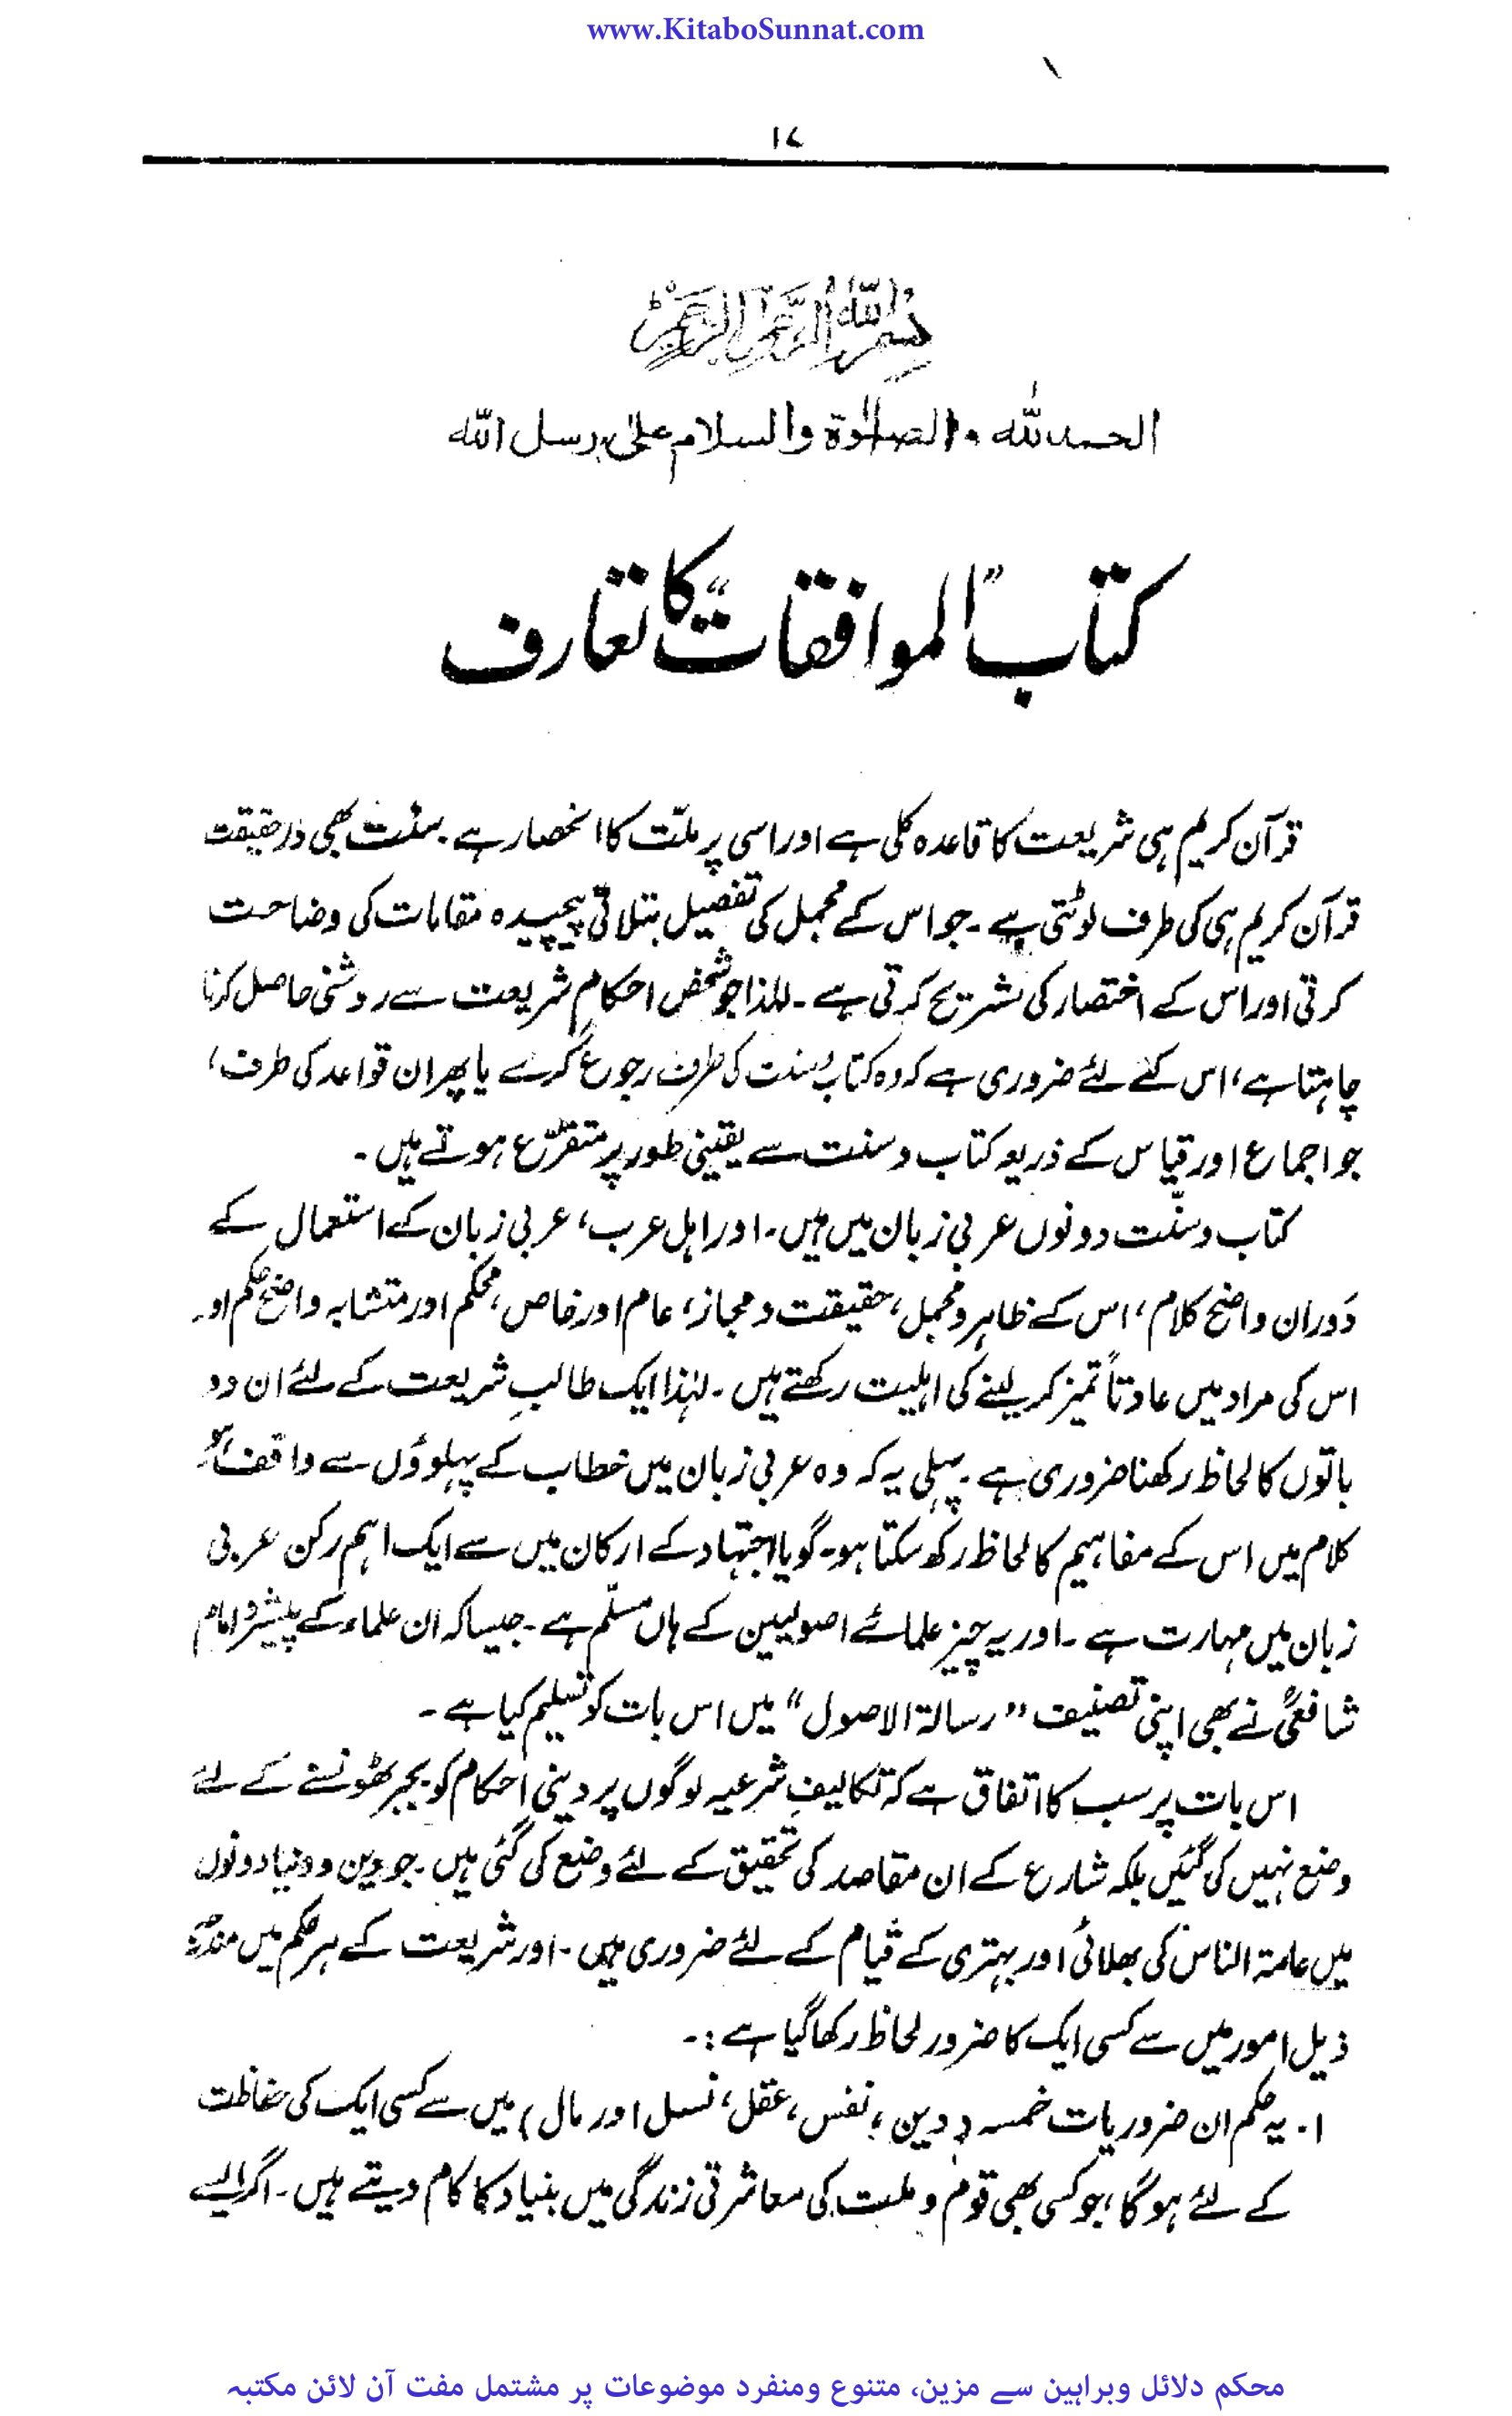 www.KitaboSunnat.com
۱۷
بسم اللہ الرحمن الرحیم
الحمدللہ والصلوٰۃ والسلام علیٰ رسل اللہ
کتاب ”الموافقات“ کا تعارف
قرآن کریم ہی شریعت کا قاعدہ کلی ہے اور اسی پر ملّت کا انحصار ہے۔ سنّت بھی درحقیقت
قرآن کریم ہی کی طرف لوٹتی ہے۔ جو اس کے مجمل کی تفصیل بتلاتی پیچیدہ مقامات کی وضاحت
کرتی اور اس کے اختصار کی تشریح کرتی ہے۔ للذا جو شخص احکامِ شریعت سے روشنی حاصل کرنا
چاہتا ہے، اس کے لئے ضروری ہے کہ وہ کتاب و سنت کی طرف رجوع کرے یا پھر ان قواعد کی طرف،
جو اجماع اور قیاس کے ذریعہ کتاب و سنت سے یقینی طور پر متفرّع ہوتے ہیں۔
کتاب و سنّت دونوں عربی زبان میں ہیں۔ اور اہل عرب، عربی زبان کے استعمال کے
دَوران واضح کلام، اس کے ظاہر و مجمل، حقیقت و مجاز، عام اور خاص، محکم اور متشابہ واضح حکم اور
اس کی مراد میں عادتاً تمیز کر لینے کی اہلیت رکھتے ہیں۔ لہٰذا ایک طالبِ شریعت کے لئے ان دو
باتوں کا لحاظ رکھنا ضروری ہے۔ پہلی یہ کہ وہ عربی زبان میں خطاب کے پہلوؤں سے واقف ہو
کلام میں اس کے مفاہیم کا لحاظ رکھ سکتا ہو۔ گویا اجتہاد کے ارکان میں سے ایک اہم رکن عربی
زبان میں مہارت ہے۔ اور یہ چیز علمائے اصولیین کے ہاں مسلّم ہے۔ جیسا کہ ان علماء کے پیشرو امام
شافعیؒ نے بھی اپنی تصنیف ”رسالۃ الاصول“ میں اس بات کو تسلیم کیا ہے۔
اس بات پر سب کا اتفاق ہے کہ تکالیفِ شرعیہ لوگوں پر دینی احکام کو بجبر ٹھونسنے کے لئے
وضع نہیں کی گئیں بلکہ شارع کے ان مقاصد کی تحقیق کے لئے وضع کی گئی ہیں۔ جو دین و دنیا دونوں
میں عامۃ الناس کی بھلائی اور بہتری کے قیام کے لئے ضروری ہیں۔ اور شریعت کے ہر حکم میں مندرجہ
ذیل امور میں سے کسی ایک کا ضرور لحاظ رکھا گیا ہے:۔
۱۔ یہ حکم ان ضروریات خمسہ (دین، نفس، عقل، نسل اور مال) میں سے کسی ایک کی حفاظت
کے لئے ہوگا، جو کسی بھی قوم و ملت کی معاشرتی زندگی میں بنیاد کا کام دیتے ہیں۔ اگر ایسے
محکم دلائل وبراہین سے مزین، متنوع ومنفرد موضوعات پر مشتمل مفت آن لائن مکتبہ